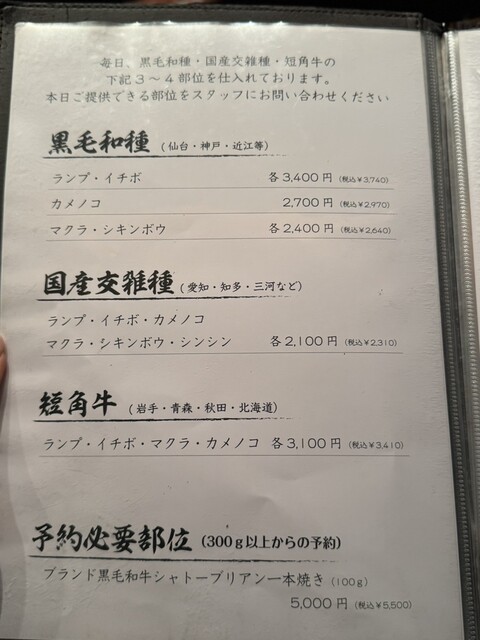 毎日、黒毛和種・国産交雑種・短角牛の
下記3～4部位を仕入れております。
本日ご提供できる部位をスタッフにお問い合わせください
黒毛和種 (仙台・神戸・近江等)
ランプ・イチボ 各3,400円 (税込¥3,740)
カメノコ 2,700円 (税込¥2,970)
マクラ・シキンボウ 各2,400円 (税込¥2,640)
国産交雑種 (愛知・知多・三河など)
ランプ・イチボ・カメノコ
マクラ・シキンボウ・シンシン 各2,100円 (税込¥2,310)
短角牛 (岩手・青森・秋田・北海道)
ランプ・イチボ・マクラ・カメノコ 各3,100円 (税込¥3,410)
予約必要部位 (300g以上からの予約)
ブランド黒毛和牛シャトーブリアン一本焼き (100g)
5,000円 (税込¥5,500)